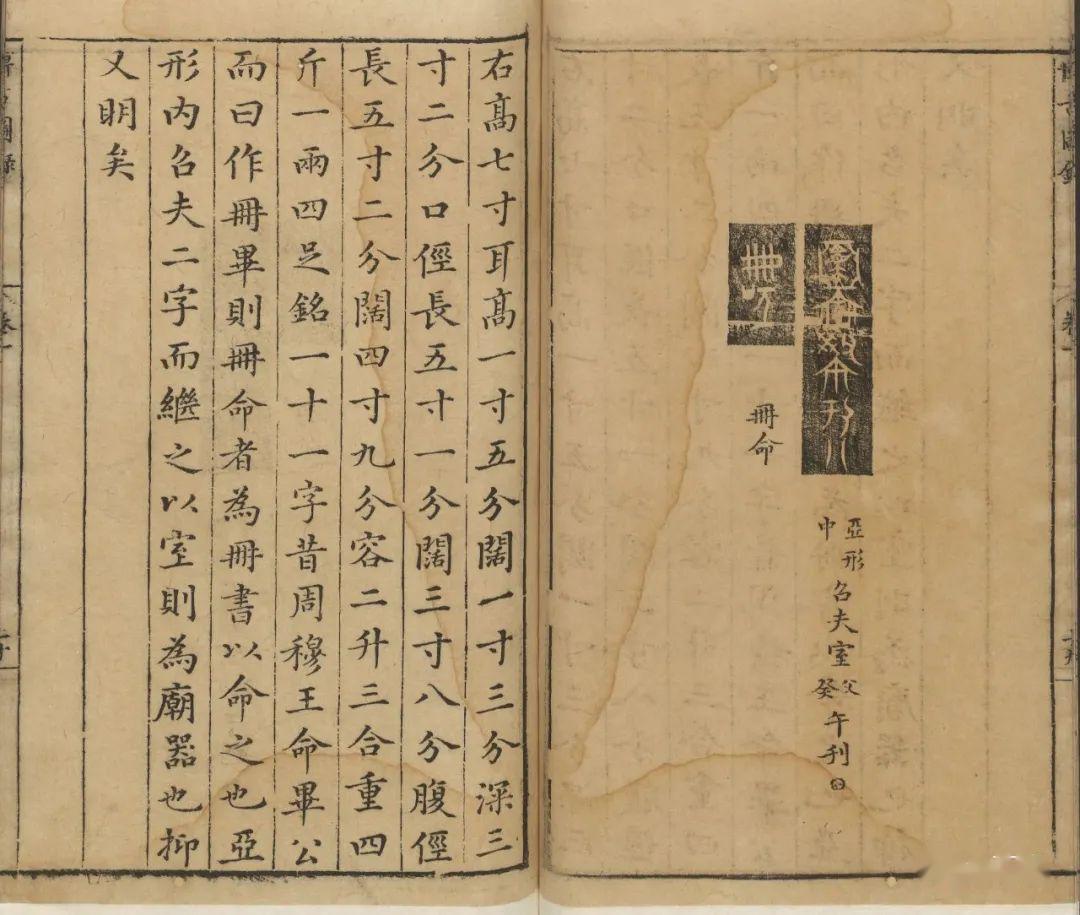 亞形
中
召夫室
父
癸
午刊
冊命
右高七寸耳高一寸五分闊一寸三分深三
寸二分口徑長五寸一分闊三寸八分腹徑
長五寸二分闊四寸九分容二升三合重四
斤一兩四足銘一十一字昔周穆王命畢公
而曰作冊畢則冊命者為冊書以命之也亞
形內召夫二字而繼之以室則為廟器也抑
又明矣